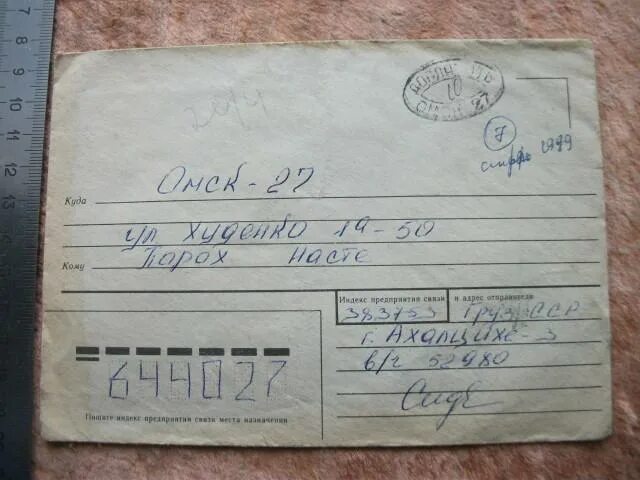 7 8 9 10 11 12 13
ДОПЛАТИТЬ
10
ОМСК 27
7
1999
Куда Омск-27
ул Худенко 19-50
Кому Порох Насте
Индекс предприятия связи и адрес отправителя
383753 Груз ССР
г. Ахалцихе-3
в/ч 52980
644027
Пишите индекс предприятия связи места назначения